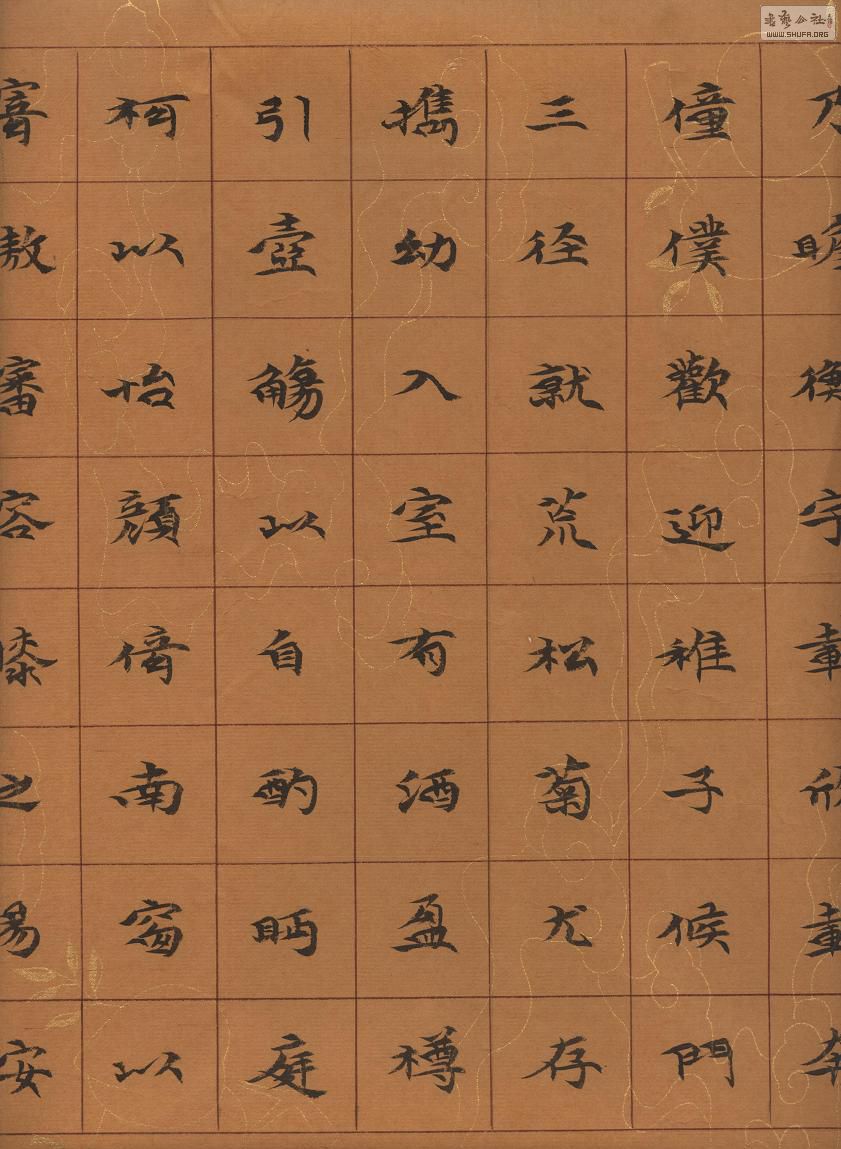 乃瞻衡宇載欣載奔
僮僕歡迎稚子候門
三径就荒松菊尤存
攜幼入室有酒盈樽
引壺觴以自酌眄庭
柯以怡顔倚南窗以
寄敖審容膝之易安
書藝公社
WWW.SHUFA.ORG